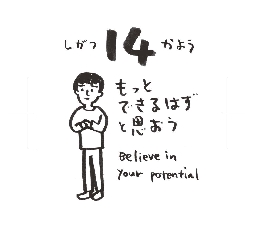 しがつ 14 かよう
もっと
できるはず
と思おう
Believe in
your potential